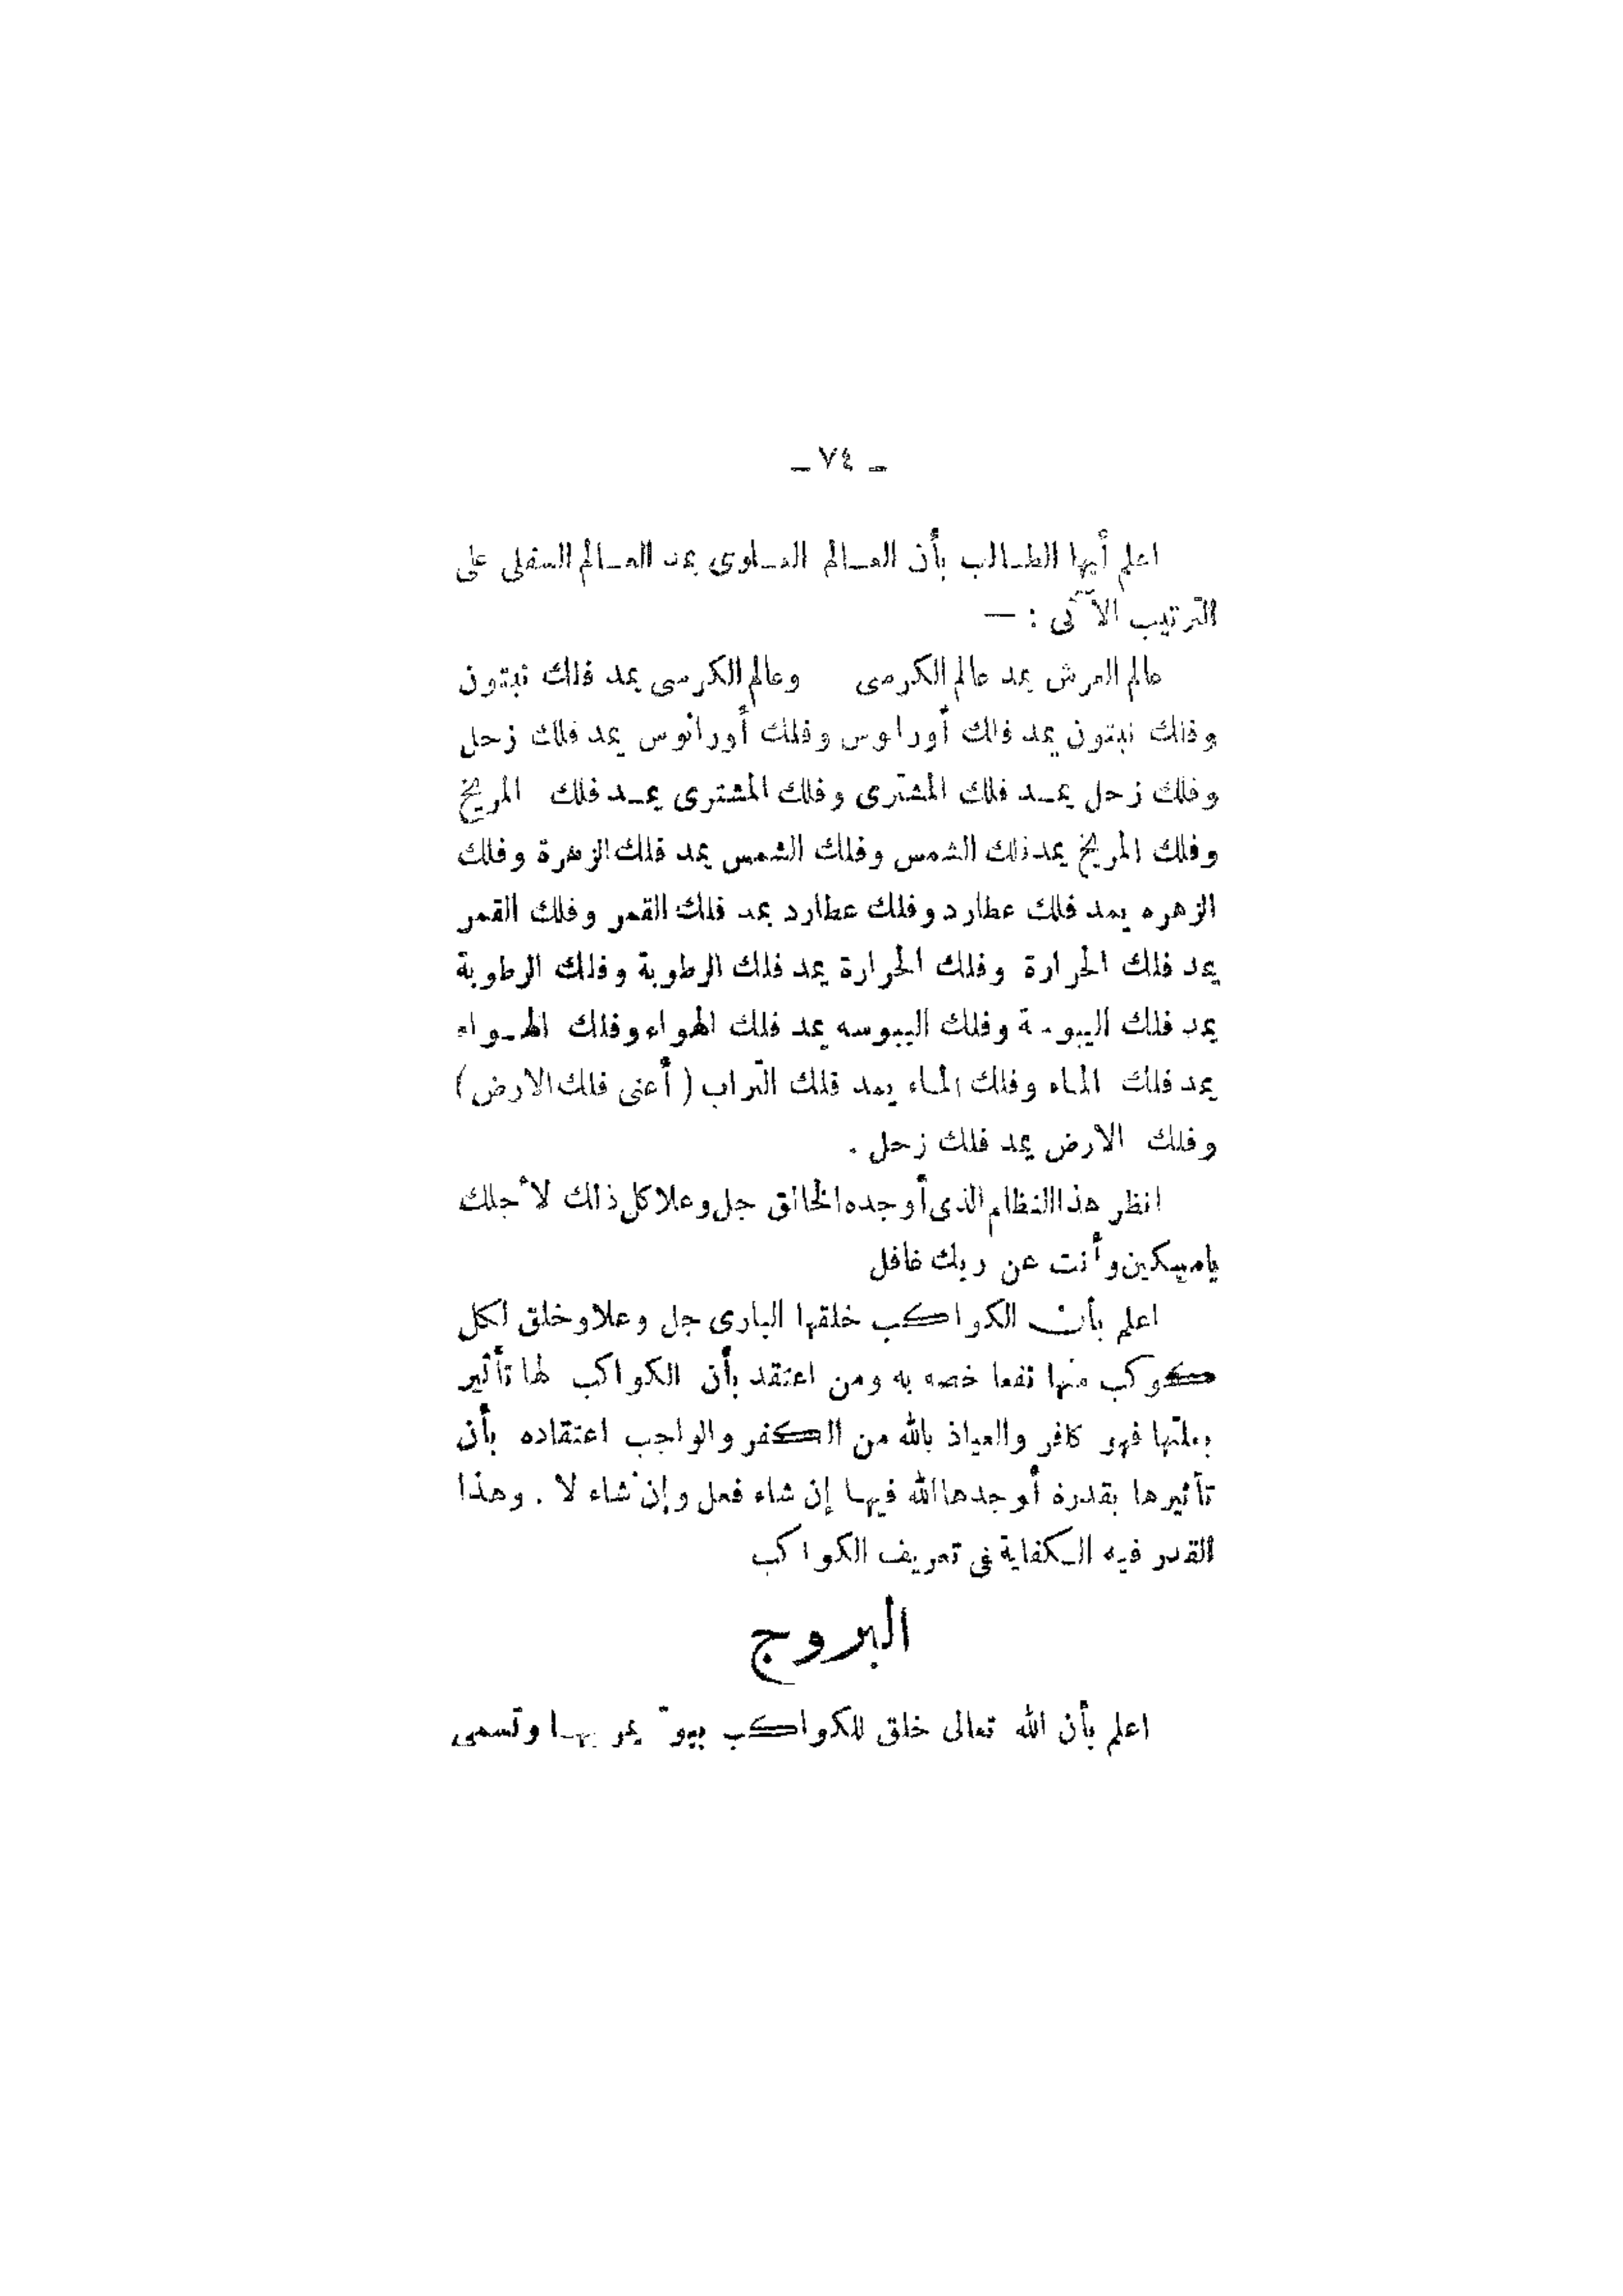 ـ ٧٤ ـ
اعلم أيها الطالب بأن العالم العلوى يمد العالم السفلى على
الترتيب الآتى : —
عالم العرش يمد عالم الكرسى وعالم الكرسى يمد فلك نبتون
وفلك نبتون يمد فلك أورانوس وفلك أورانوس يمد فلك زحل
وفلك زحل يمد فلك المشترى وفلك المشترى يمد فلك المريخ
وفلك المريخ يمد فلك الشمس وفلك الشمس يمد فلك الزهرة وفلك
الزهره يمد فلك عطارد وفلك عطارد يمد فلك القمر وفلك القمر
يمد فلك الحرارة وفلك الحرارة يمد فلك الرطوبة وفلك الرطوبة
يمد فلك اليبوسة وفلك اليبوسه يمد فلك الهواء وفلك الهواء
يمد فلك الماء وفلك الماء يمد فلك التراب ( أعنى فلك الارض )
وفلك الارض يمد فلك زحل .
انظر هذا النظام الذى أوجده الخالق جل وعلا كل ذلك لأجلك
يامسكين وأنت عن ربك غافل
اعلم بأن الكواكب خلقها البارى جل وعلا وخلق لكل
كوكب منها نفعا خصه به ومن اعتقد بأن الكواكب لها تأثير
بعلتها فهو كافر والعياذ بالله من الكفر والواجب اعتقاده بأن
تأثيرها بقدرة أوجدها الله فيها إن شاء فعل وإن شاء لا . وهذا
القدر فيه الكفاية فى تعريف الكواكب
البروج
اعلم بأن الله تعالى خلق للكواكب بيوتا يمر بها وتسمى